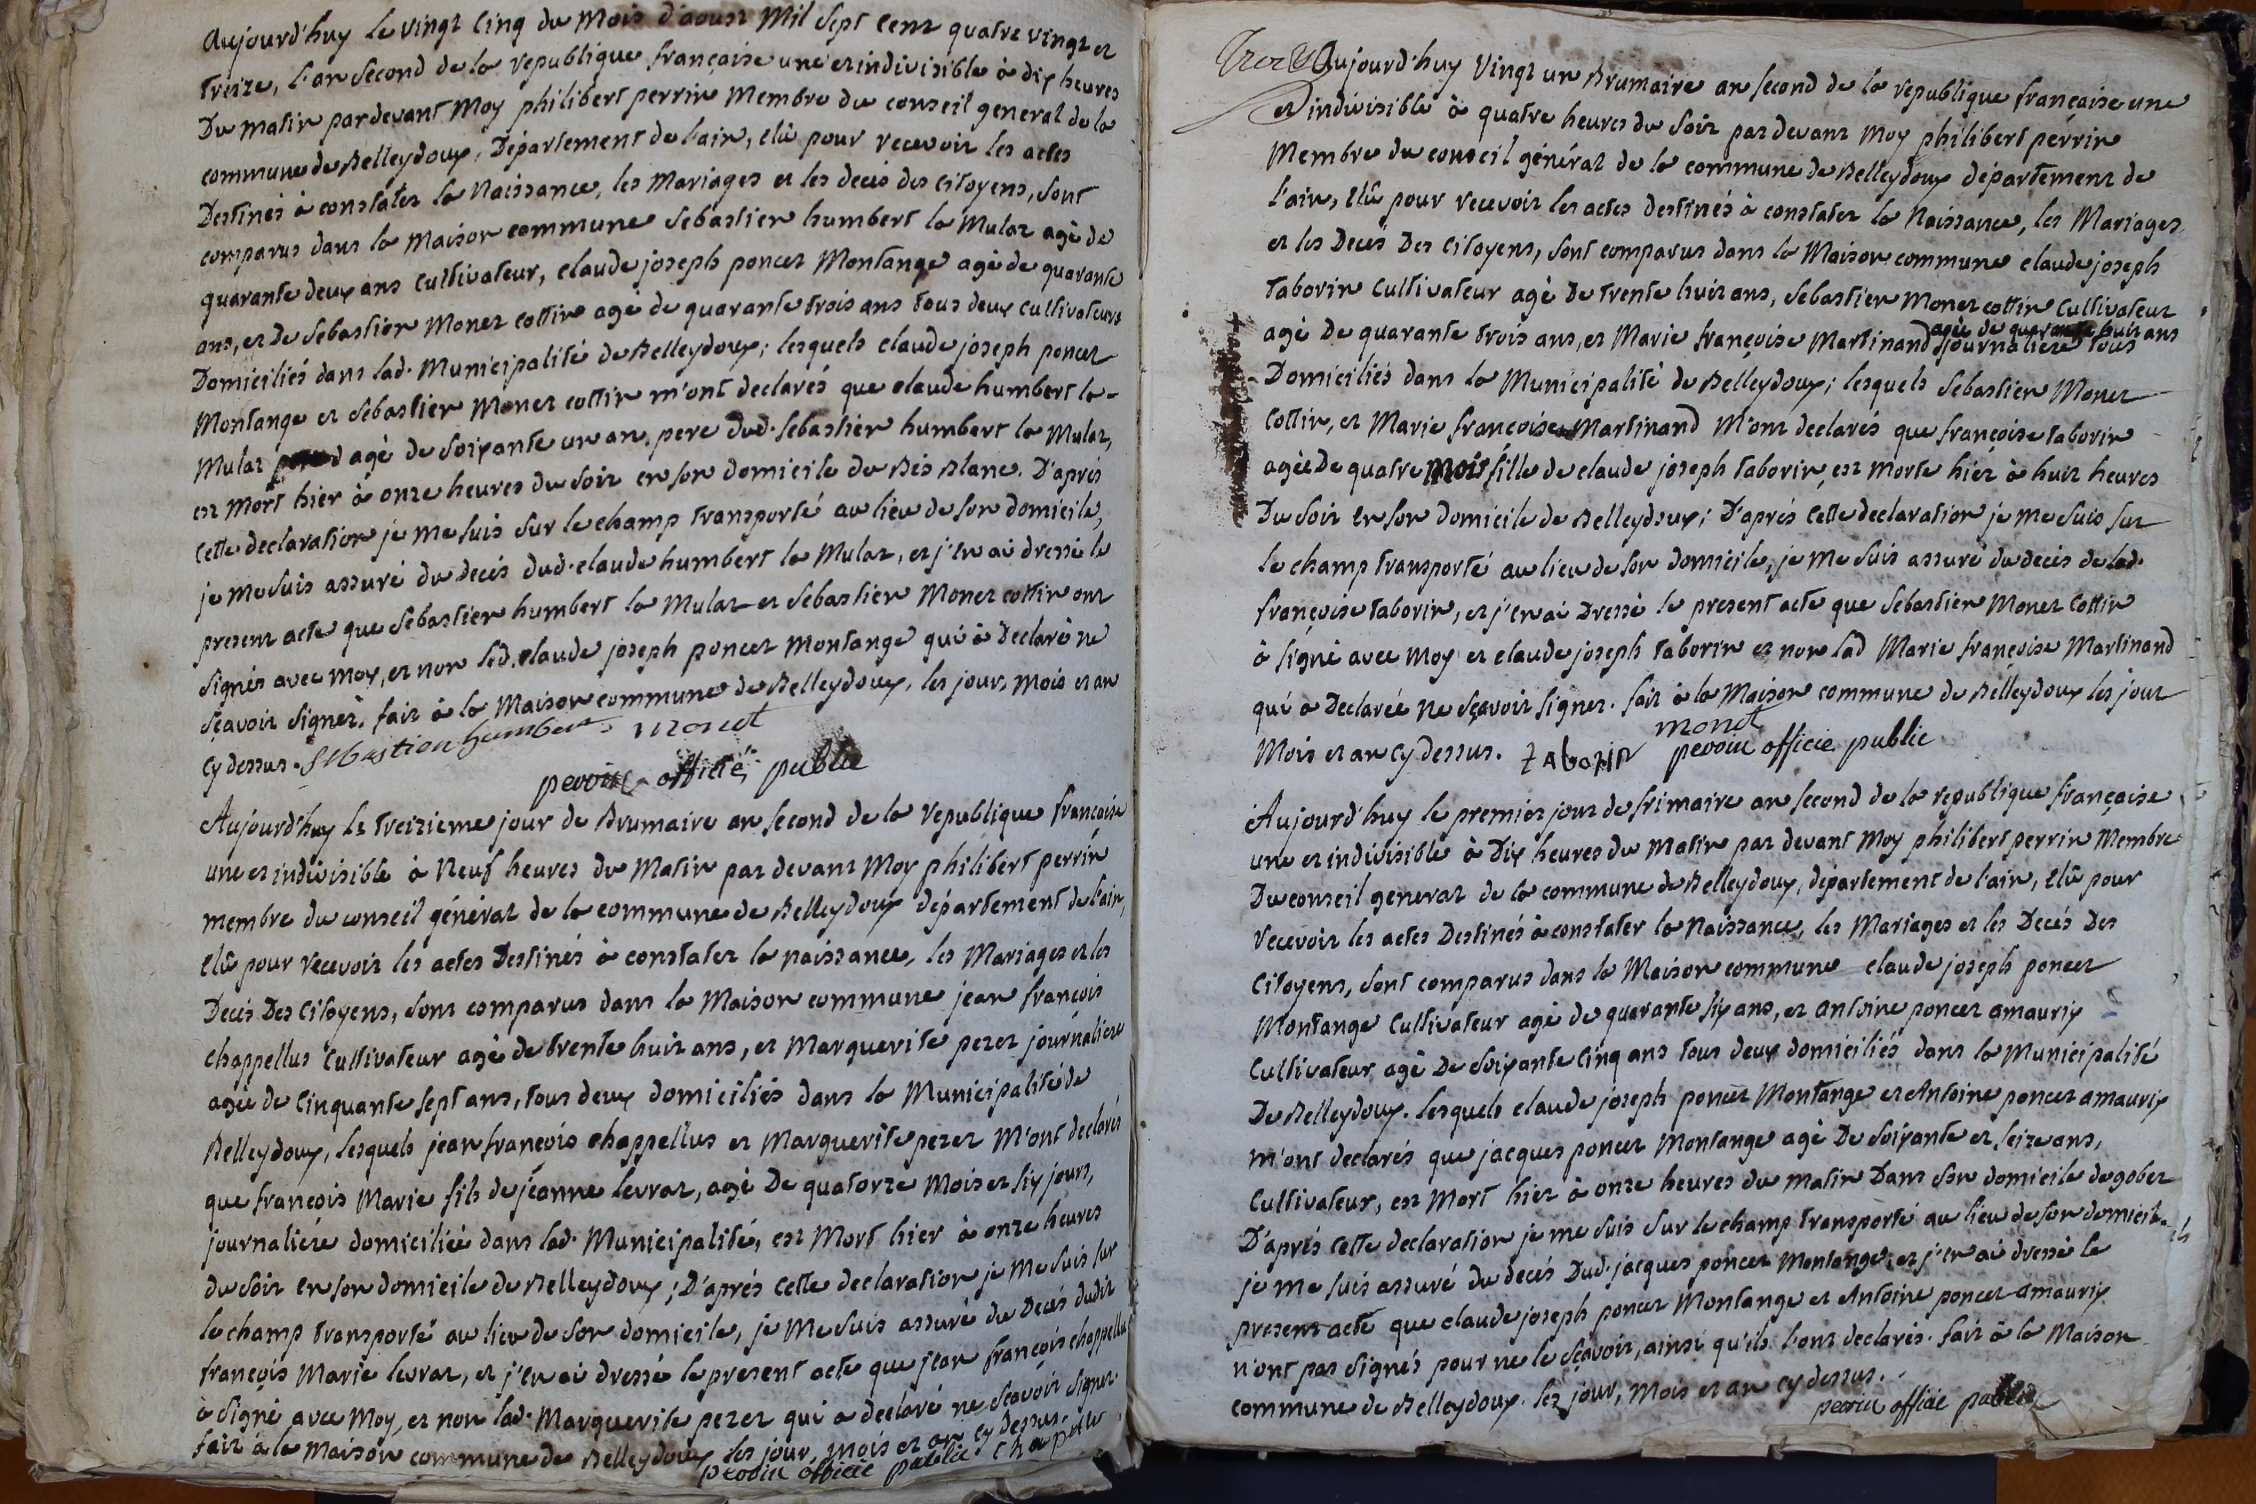 Aujourd'huy le vingt cinq du Mois d'aoust Mil Sept Cent quatre vingt et
treize, l'an second de la republique françaisse une et indivisible à dix heures
Du matin pardevant Moy philibert perrin Membre du conseil general de la
commune de Belleydoux, Departement de l'ain, elû pour recevoir les actes
Destinés à constater la Naissance, les Mariages et les decés des citoyens, sont
comparus dans la Maison commune Sebastien humbert la Mulaz agè de
quarante deux ans Cultivateur, claude joseph poncet Montange agè de quarante
ans, et de Sebastien Monet cottin agè de quarante trois ans tous deux Cultivateurs
Domiciliés dans lad. Municipalité de Belleydoux; lesquels claude joseph poncet
Montange et Sebastien Monet cottin m'ont declarés que claude humbert la
Mulaz agè de soixante un an, pere dud. Sebastien humbert la Mulaz,
est Mort hier à onze heures du soir en son domicile du Bés Blanc. D'aprés
Cette declaration je me suis sur le champ transporté au lieu de son domicile,
je me suis assuré du decés dud. claude humbert la Mulaz, et j'en ai dressé le
present acte que Sebastien humbert la Mulaz et Sebastien Monet cottin ont
signés avec moy, et non led. claude joseph poncet Montange qui à Declaré ne
sçavoir signer. fait à la Maison commune de Belleydoux, les jour, mois et an
Cy dessus. Sebastien humbert. monet
perrin officié public
Aujourd'huy le treizieme jour de Brumaire an second de la republique françaisse
une et indivisible à Neuf heures du Matin par devant Moy philibert perrin
membre du conseil général de la commune de Belleydoux département de l'ain,
elû pour recevoir les actes Destinés à constater la naissance, les Mariages et les
Decés Des Citoyens, sont comparus dans la Maison commune jean françois
chappellus Cultivateur agè de trente huit ans, et Marguerite perez journaliere
agée de Cinquante sept ans, tous deux domiciliés dans la Municipalité de
Belleydoux, lesquels jean françois chappellus et Marguerite perez M'ont declarés
que françois Marie fils de jeanne levrat, agé De quatorze Mois et six jours,
journaliére domiciliée dans lad. Municipalité, est Mort hier à onze heures
du soir en son domicile de Belleydoux; D'aprés cette declaration je Me suis sur
le champ transporté au lieu de son domicile, je Me suis assuré du Decés dudit
françois Marie levrat, et j'en ai dressé le present acte que jean françois chappellus
à signé avec Moy, et non lad. Marguerite perez qui a declaré ne sçavoir signer
fait à la Maison commune de Belleydoux les jour, mois et an cy dessus.
perrin officié public
Aujourd'huy Vingt un Brumaire an second de la republique françaisse une
et indivisible à quatre heures du soir par devant Moy philibert perrin
Membre du conseil général de la commune de Belleydoux département de
l'ain, elû pour recevoir les actes destinés à constater la Naissance, les Mariages
et les Decés Des Citoyens, sont comparus dans la Maison commune claude joseph
taborin Cultivateur agè de trente huit ans, Sebastien Monet cottin Cultivateur
agée de quarante huit ans
agè De quarante trois ans, et Marie françoise Martinand journaliere tous
Domiciliés dans la Municipalité de Belleydoux; lesquels Sebastien Monet
Cottin, et Marie françoise Martinand M'ont declarés que françoise taborin
agée De quatre Mois fille de claude joseph taborin, est Morte hier à huit heures
Du soir en son domicile de Belleydoux; D'aprés cette declaration je me suis sur
le champ transporté au lieu de son domicile, je Me suis assuré du decés de lad.
françoise taborin, et j'en ai Dressé le present acte que Sebastien Monet Cottin
à signé avec moy et claude joseph taborin et non lad Marie françoise Martinand
qui a Declarée ne sçavoir signer. fait à la Maison commune de Belleydoux les jour
Mois et an Cy dessus. tAboRiN monet
perrin officie public
Aujourd'huy le premier jour de frimaire an second de la republique françaisse
une et indivisible à Dix heures du matin par devant Moy philibert perrin Membre
Du conseil general de la commune de Belleydoux, département de l'ain, elû pour
recevoir les actes Destinés à constater la naissance, les Mariages et les Decés Des
Citoyens, sont comparus dans la Maison commune claude joseph poncet
Montange Cultivateur agè de quarante six ans, et antoine poncet amaurix
Cultivateur agè De soixante cinq ans tous deux domiciliés dans la Municipalité
De Belleydoux. lesquels claude joseph poncet Montange et Antoine poncet amaurix
m'ont declarés que jacques poncet Montange agè De soixante et seize ans,
Cultivateur, est Mort hier à onze heures du matin Dans son domicile de gobet
D'aprés cette declaration je me suis sur le champ transporté au lieu de son domicile
je me suis assuré du decés Dud. jacques poncet Montange, et j'en ai dressé le
present acte que claude joseph poncet Montange et Antoine poncet amaurix
n'ont pas signés pour ne le sçavoir, ainsi qu'ils l'ont declarés. fait à la Maison
commune de Belleydoux. les jour, mois et an cy dessus.
perrin officie public